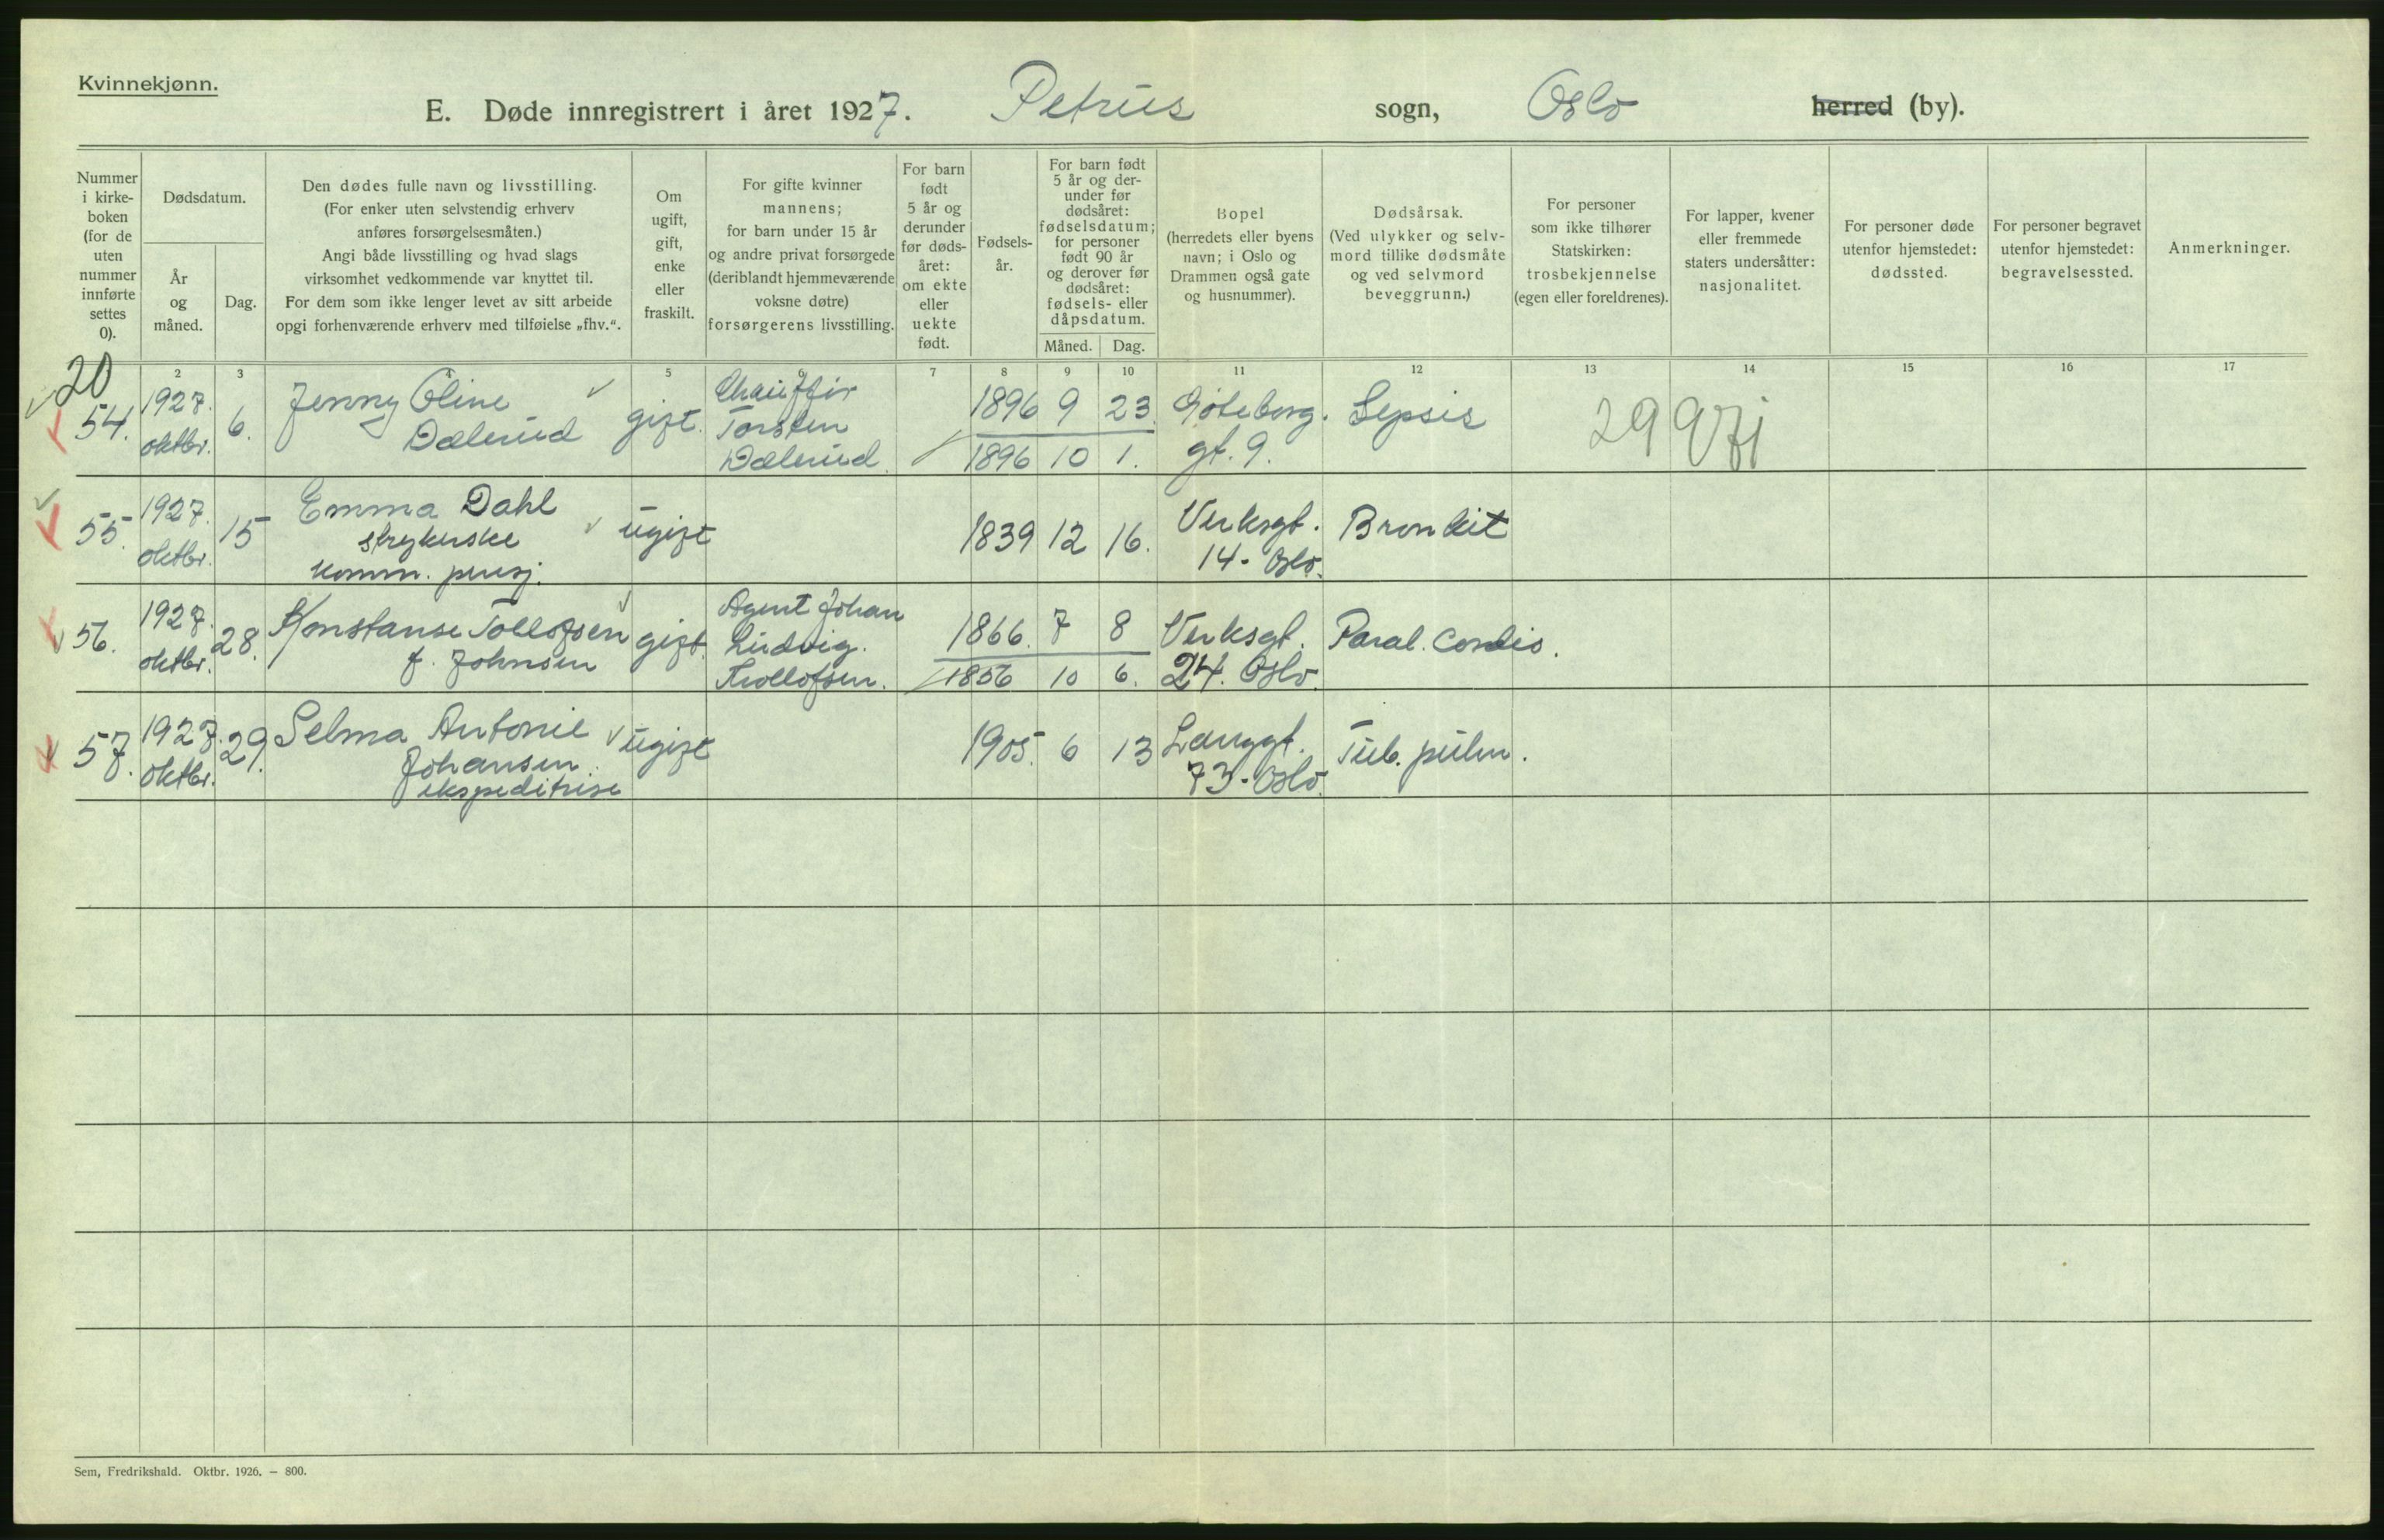 Kvinnekjønn.
E. Døde innregistrert i året 1927. Petrus sogn, Oslo herred (by).
Nummer i kirke-boken (for de uten nummer innførte settes 0).
Dødsdatum.
År og måned.
Dag.
Den dødes fulle navn og livsstilling.
(For enker uten selvstendig erhverv
anføres forsørgelsesmåten.)
Angi både livsstilling og hvad slags
virksomhet vedkommende var knyttet til.
For dem som ikke lenger levet av sitt arbeide
opgi forhenværende erhverv med tilføielse „fhv.“.
Om ugift, gift, enke eller fraskilt.
For gifte kvinner
mannens;
for barn under 15 år
og andre privat forsørgede
(deriblandt hjemmeværende
voksne døtre)
forsørgerens livsstilling.
For barn født 5 år og derunder før døds-året: om ekte eller uekte født.
Fødsels-år.
For barn født
5 år og der-
under før
dødsåret:
fødselsdatum;
for personer
født 90 år
og derover før
dødsåret:
fødsels- eller
dåpsdatum.
Måned. Dag.
Bopel
(herredets eller byens
navn; i Oslo og
Drammen også gate
og husnummer).
Dødsårsak.
(Ved ulykker og selv-
mord tillike dødsmåte
og ved selvmord
beveggrunn.)
For personer
som ikke tilhører
Statskirken:
trosbekjennelse
(egen eller foreldrenes).
For lapper, kvener
eller fremmede
staters undersåtter:
nasjonalitet.
For personer døde
utenfor hjemstedet:
dødssted.
For personer begravet
utenfor hjemstedet:
begravelsessted.
Anmerkninger.
2 3 5 7 8 9 10 11 12 13 14 15 16 17
20
54. 1927. oktbr. 6. Jenny Oline Dælerud gift. Chauffør Torsten Dælerud 1896 9 23. Göteborg. gt. 9. Sepsis
1896 10 1.
55. 1927. oktbr. 15 Emma Dahl strykerske komm. pensj. ugift 1839 12 16. Verksgt. 14 - Oslo. Bronkit
56. 1927. oktbr. 28. Konstanse Tollofsen f. Johnsen gift. Agent Johan Ludvig. Thollofsen. 1866. 7 8 Verksgt. 24. Oslo. Paral. Cordis.
1856 10 6.
57. 1927. oktbr. 29. Selma Antonie Johansen. ekspeditrise ugift 1905. 6 13 Langgt. 73 - Oslo. Tub. pulm.
Sem, Fredrikshald. Oktbr. 1926. – 800.